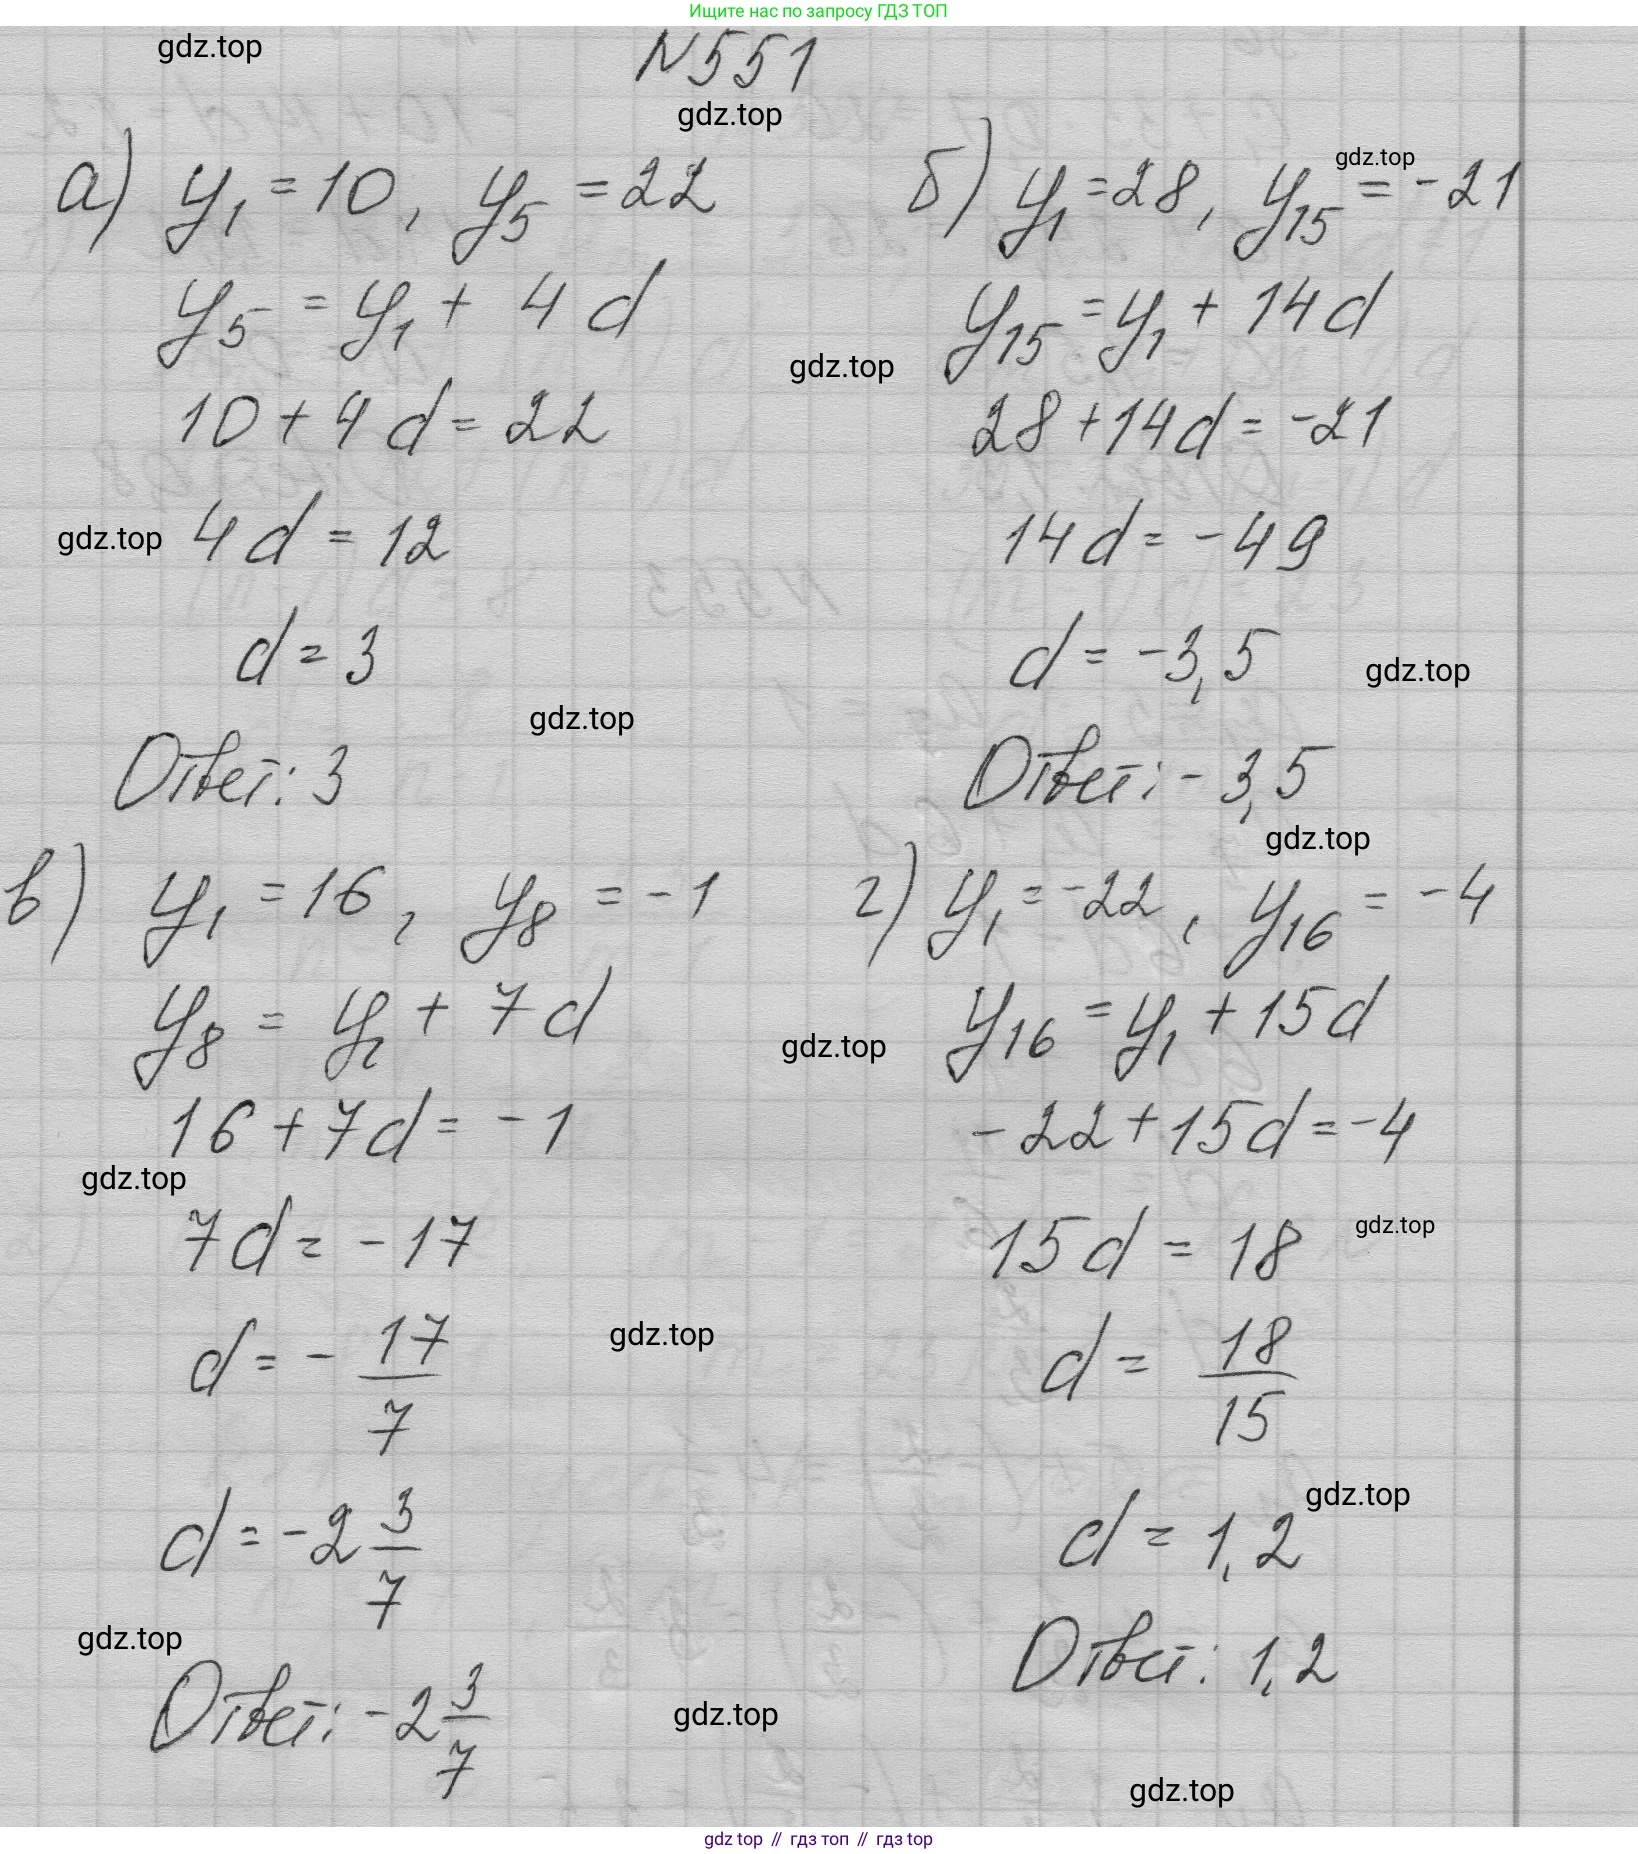 Ищите нас по запросу ГДЗ ТОП
gdz.top
N551
gdz.top
а) y₁ = 10, y₅ = 22
y₅ = y₁ + 4d
10 + 4d = 22
gdz.top
4d = 12
d = 3
gdz.top
Ответ: 3
б) y₁ = 28, y₁₅ = -21
gdz.top
y₁₅ = y₁ + 14d
gdz.top
28 + 14d = -21
14d = -49
d = -3,5
gdz.top
Ответ: -3,5
gdz.top
в) y₁ = 16, y₈ = -1
y₈ = y₁ + 7d
16 + 7d = -1
gdz.top
7d = -17
d = - 17/7
gdz.top
d = -2 3/7
gdz.top
Ответ: -2 3/7
gdz.top
г) y₁ = -22, y₁₆ = -4
y₁₆ = y₁ + 15d
gdz.top
-22 + 15d = -4
15d = 18
gdz.top
d = 18/15
gdz.top
d = 1,2
Ответ: 1,2
gdz.top
gdz top // гдз топ // гдз top